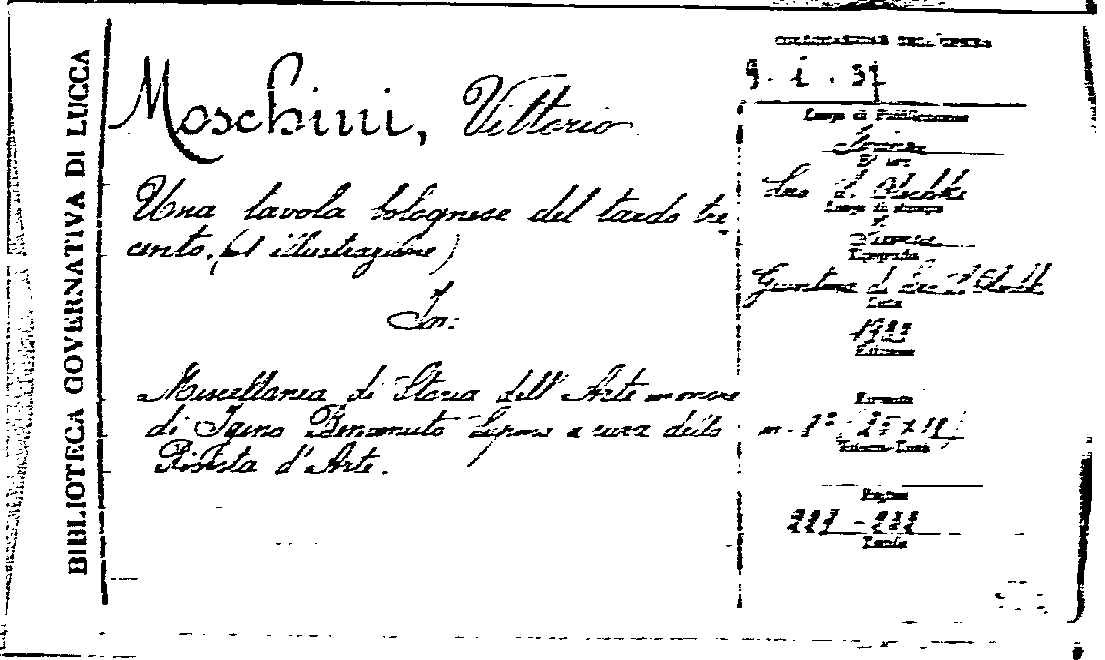 BIBLIOTECA GOVERNATIVA DI LUCCA
Moschini, Vittorio
Una tavola bolognese del tardo tre
cento. (1 illustrazione)
In:
Miscellanea di Storia dell'Arte in onore
di Igino Benvenuto Supino a cura della
Rivista d'Arte.
COLLOCAZIONE DELL'OPERA
I . 37
Luogo di Pubblicazione
Firenze
Leo S. Olschki
Luogo di stampa
Firenze
Tipografia
Giuntina di Leo S. Olschki
Data
1933
Edizione
Formato
in - 8° (25 x 18)
Pagine
Tavole